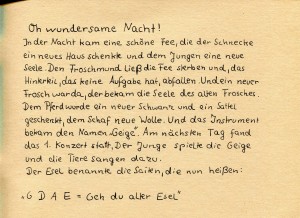 Oh wundersame Nacht!
In der Nacht kam eine schöne Fee, die der Schnecke
ein neues Haus schenkte und dem Jungen eine neue
Seele. Den Froschmund ließ die Fee sterben und, das
Hinkebein, das keine Aufgabe hat, abfallen Und ein neuer
Frosch war da, der bekam die Seele des alten Frosches.
Dem Pferd wurde ein neuer Schwanz und ein Sattel
geschenkt, dem Schaf neue Wolle. Und das Instrument
bekam den Namen „Geige". Am nächsten Tag fand
das 1. Konzert statt, Der Junge spielte die Geige
und die Tiere sangen dazu.
Der Esel benannte die Saiten, die nun heißen:
"G D A E = Geh du alter Esel"